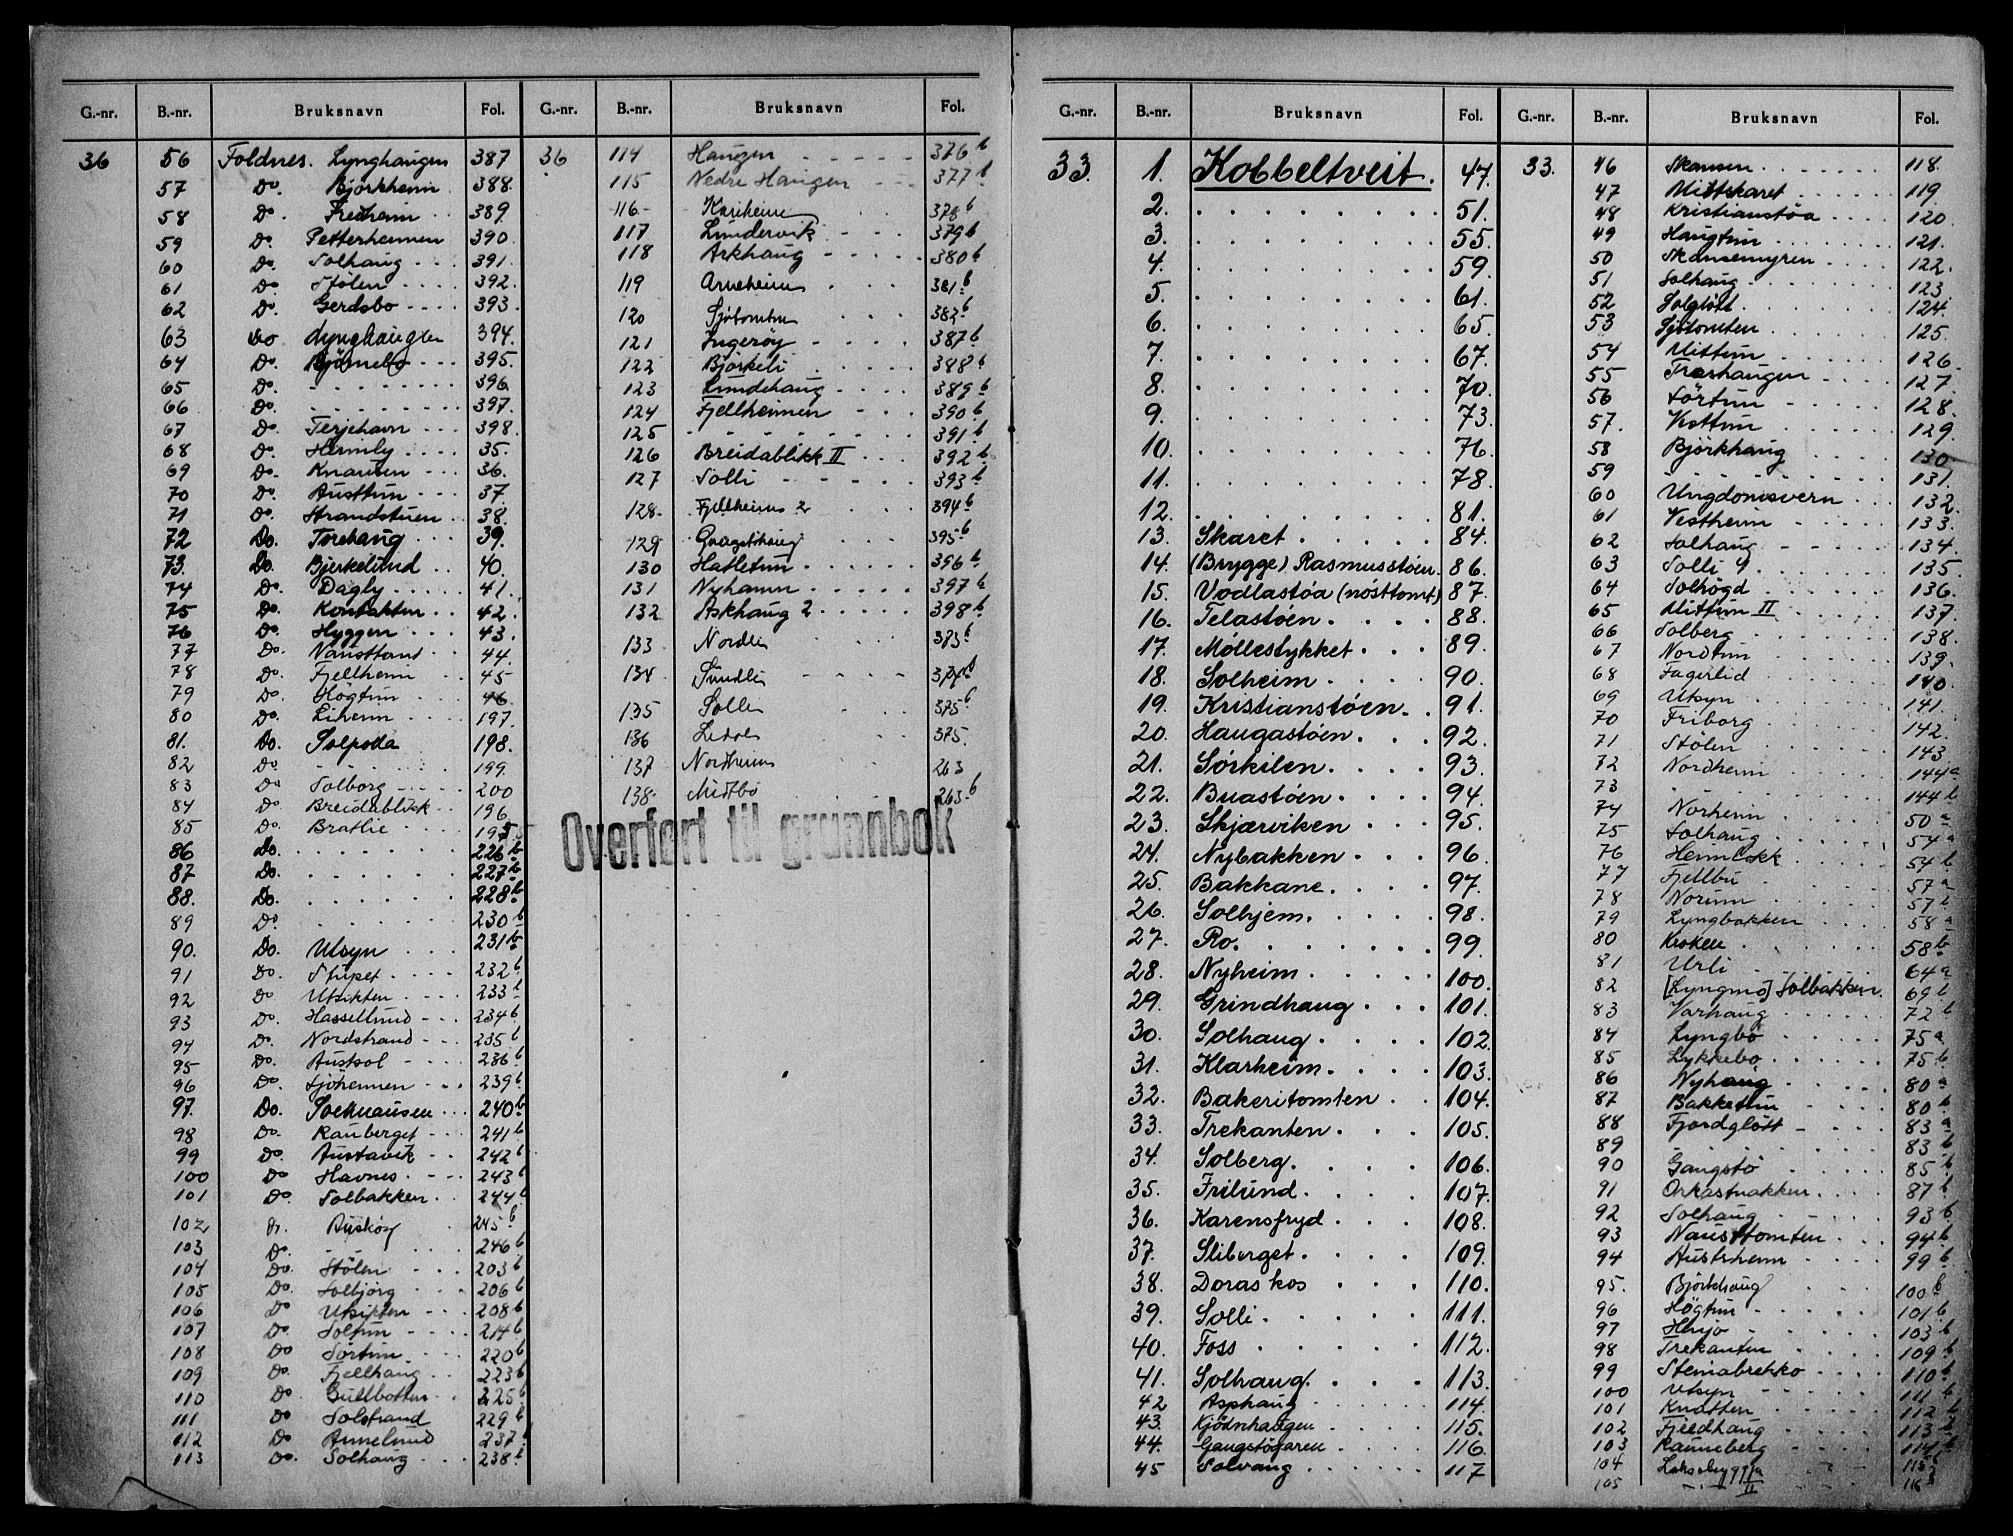 G.-nr. B.-nr. Bruksnavn Fol. G.-nr. B.-nr. Bruksnavn Fol.
36 56 Foldnes. Lynghaugen 387
57 Do. Björkheim 388.
58 Do. Fredheim 389.
59 Do. Petterheimen 390.
60 Do. Solhaug 391.
61 Do Stölen 392.
62 Do. Gerdsbo 393.
63 Do Lynghaugen 394.
64 Do. Björnebo 395.
65 Do. 396.
66 Do. 397.
67 Do. Terjehavn 398.
68 Do. Heimly 35.
69 Do. Knausen 36.
70 Do. Austtun 37.
71 Do. Strandstuen 38.
72 Do. Torehaug 39.
73. Do. Bjerkelund 40.
74 Do. Dagly 41.
75 Do. Kontakten 42.
76 Do. Hyggen 43.
77 Do. Nausttomt 44.
78 Do. Fjellheim 45
79 Do. Högtun 46.
80 Do. Liheim 197.
81. Do. Solpoda 198.
82 Do. 199.
83 Do Solborg 200
84 Do. Breidablikk 196
85 Do. Bratlie 195
86 Do. 226 b
87 Do. 227 b
88. Do. 228 b
89 Do. 230 b
90. Do. Utsyn 231 b
91 Do. Stupet 232 b
92 Do Utsikten 233 b
93 Do. Hassellund 234 b
94 Do. Nordstrand 235 b
95 Do. Austsol 236 b
96 Do. Sjöheimen 239 b
97. Do. Solknausen 240 b
98 Do. Rauberget 241 b
99 Do. Austavik 242 b
100 Do Havnes 243 b
101 Do Solbakken 244 b
102 Do. Ausköy 245 b
103 Do. 246 b
104 Do. Stölen 203 b
105 Do. Solbjörg 206 b
106 Do Utsikten 208 b
107 Do. Soltun 214 b
108 Do Sörtun 220 b
109 Do Fjellhaug 223 b
110 Do. Gullbotten 225 b
111 Do Solstrand 229 b
112 Do Annelund 237 b
113 Do. Solhaug 238 b
36 114 Haugen 376 b
115 Nedre Haugen 377 b
116 Kariheim 378 b
117 Lundervik 379 b
118 Askhaug 380 b
119 Arneheim 381 b
120 Sjötomten 382 b
121 Ingeröy 387 b
122 Björkeli 388 b
123 Lundehaug 389 b
124 Fjellheimen 390 b
125 391 b
126 Breidablikk II 392 b
127 Solli 393 b
128. Fjellheim 2 394 b
129 395 b
130 Hatletun 396 b
131 Nyhamn 397 b
132 Askhaug 2 398 b
133 Nordli 373 b
134 Sundli 374 b
135 Solli 375 b
136 375.
137 Nordheim 263
138. Midtbö 263 b
Overført til grunnbok
G.-nr. B.-nr. Bruksnavn Fol. G.-nr. B.-nr. Bruksnavn Fol.
33. 1. Kobbeltveit. 47.
2. 51.
3. 55.
4. 59.
5. 61.
6. 65.
7. 67.
8. 70.
9. 73.
10. 76.
11. 78.
12. 81.
13. Skaret 84.
14. (Brygge) Rasmusstøen. 86.
15. Vodlastøa (nøsttomt) 87.
16. Telastøen 88.
17. Møllestykket 89.
18. Solheim 90.
19. Kristianstøen. 91.
20. Haugastøen 92.
21. Sørkilen 93.
22. Buastøen 94.
23. Skjærviken 95.
24. Nybakken 96.
25. Bakkane 97.
26. Solhjem. 98.
27. Ro. 99.
28. Nyheim 100.
29. Grindhaug 101.
30. Solhaug 102.
31. Klarheim 103.
32. Bakeritomten 104.
33. Trekanten 105.
34. Solberg. 106.
35. Frilund. 107.
36. Karensfryd 108.
37. Sliberget 109.
38. Doraskos 110.
39. Solli 111.
40. Foss 112.
41. Solhaug. 113.
42 Asphaug 114.
43. Kjødnhaugen 115.
44. Gangstögaren 116.
45 Solvang 117
33. 46 Skansen 118.
47 Mittskaret 119.
48 Kristianstøa 120.
49 Haugtun 121.
50 Skansemyren 122.
51 Solhaug 123
52 Solgløtt 124.
53 Sjötomten 125.
54 Mittun 126.
55 Træshaugen 127.
56 Sörtun 128.
57. Vesttun 129.
58 Björkhaug 130
59 131.
60 Ungdomsvern 132.
61 Vestheim 133.
62 Solhaug 134.
63 Solli 135.
64 Solhögd 136.
65 Mittun II 137.
66 Solberg 138.
67 Nordtun 139.
68 Fagerlid 140.
69 Utsyn 141.
70 Friborg 142.
71 Stölen 143
72 Nordheim 144 a
73 144 b
74 Norheim 50 a
75 Solhaug 54 a
76 Heimlokk 54 b
77 Fjellbu 57 a
78 Norunn 57 b
79 Lyngbakken 58 a
80 Kroken 58 b
81 Urli 64 a
82 [Lyngmo] Solbakken. 69 b
83 Varhaug 72 b
84 Lyngbö 75 a
85 Lykkebo 75 b
86 Nyhaug 80 a
87 Bakketun 80 b
88 Fjordgløtt 83 a
89 83 b
90 Gangstö 85 b
91 Orkastnakken 87 b
92 Solhaug 93 b
93 Nausttomten 94 b
94 Austrheim 99 b
95. Björkhaug 100 b
96 Högtun 101 b
97 103 b
98 Trekanten 109 b
99 Steinabrekko 110 b
100 Utsyn 111 b
101 Knatten 112 b
102 Fjeldhaug 113 b
103 Rauneberg 114 b
104 Laksebrygga 115 b
105 II 116 b